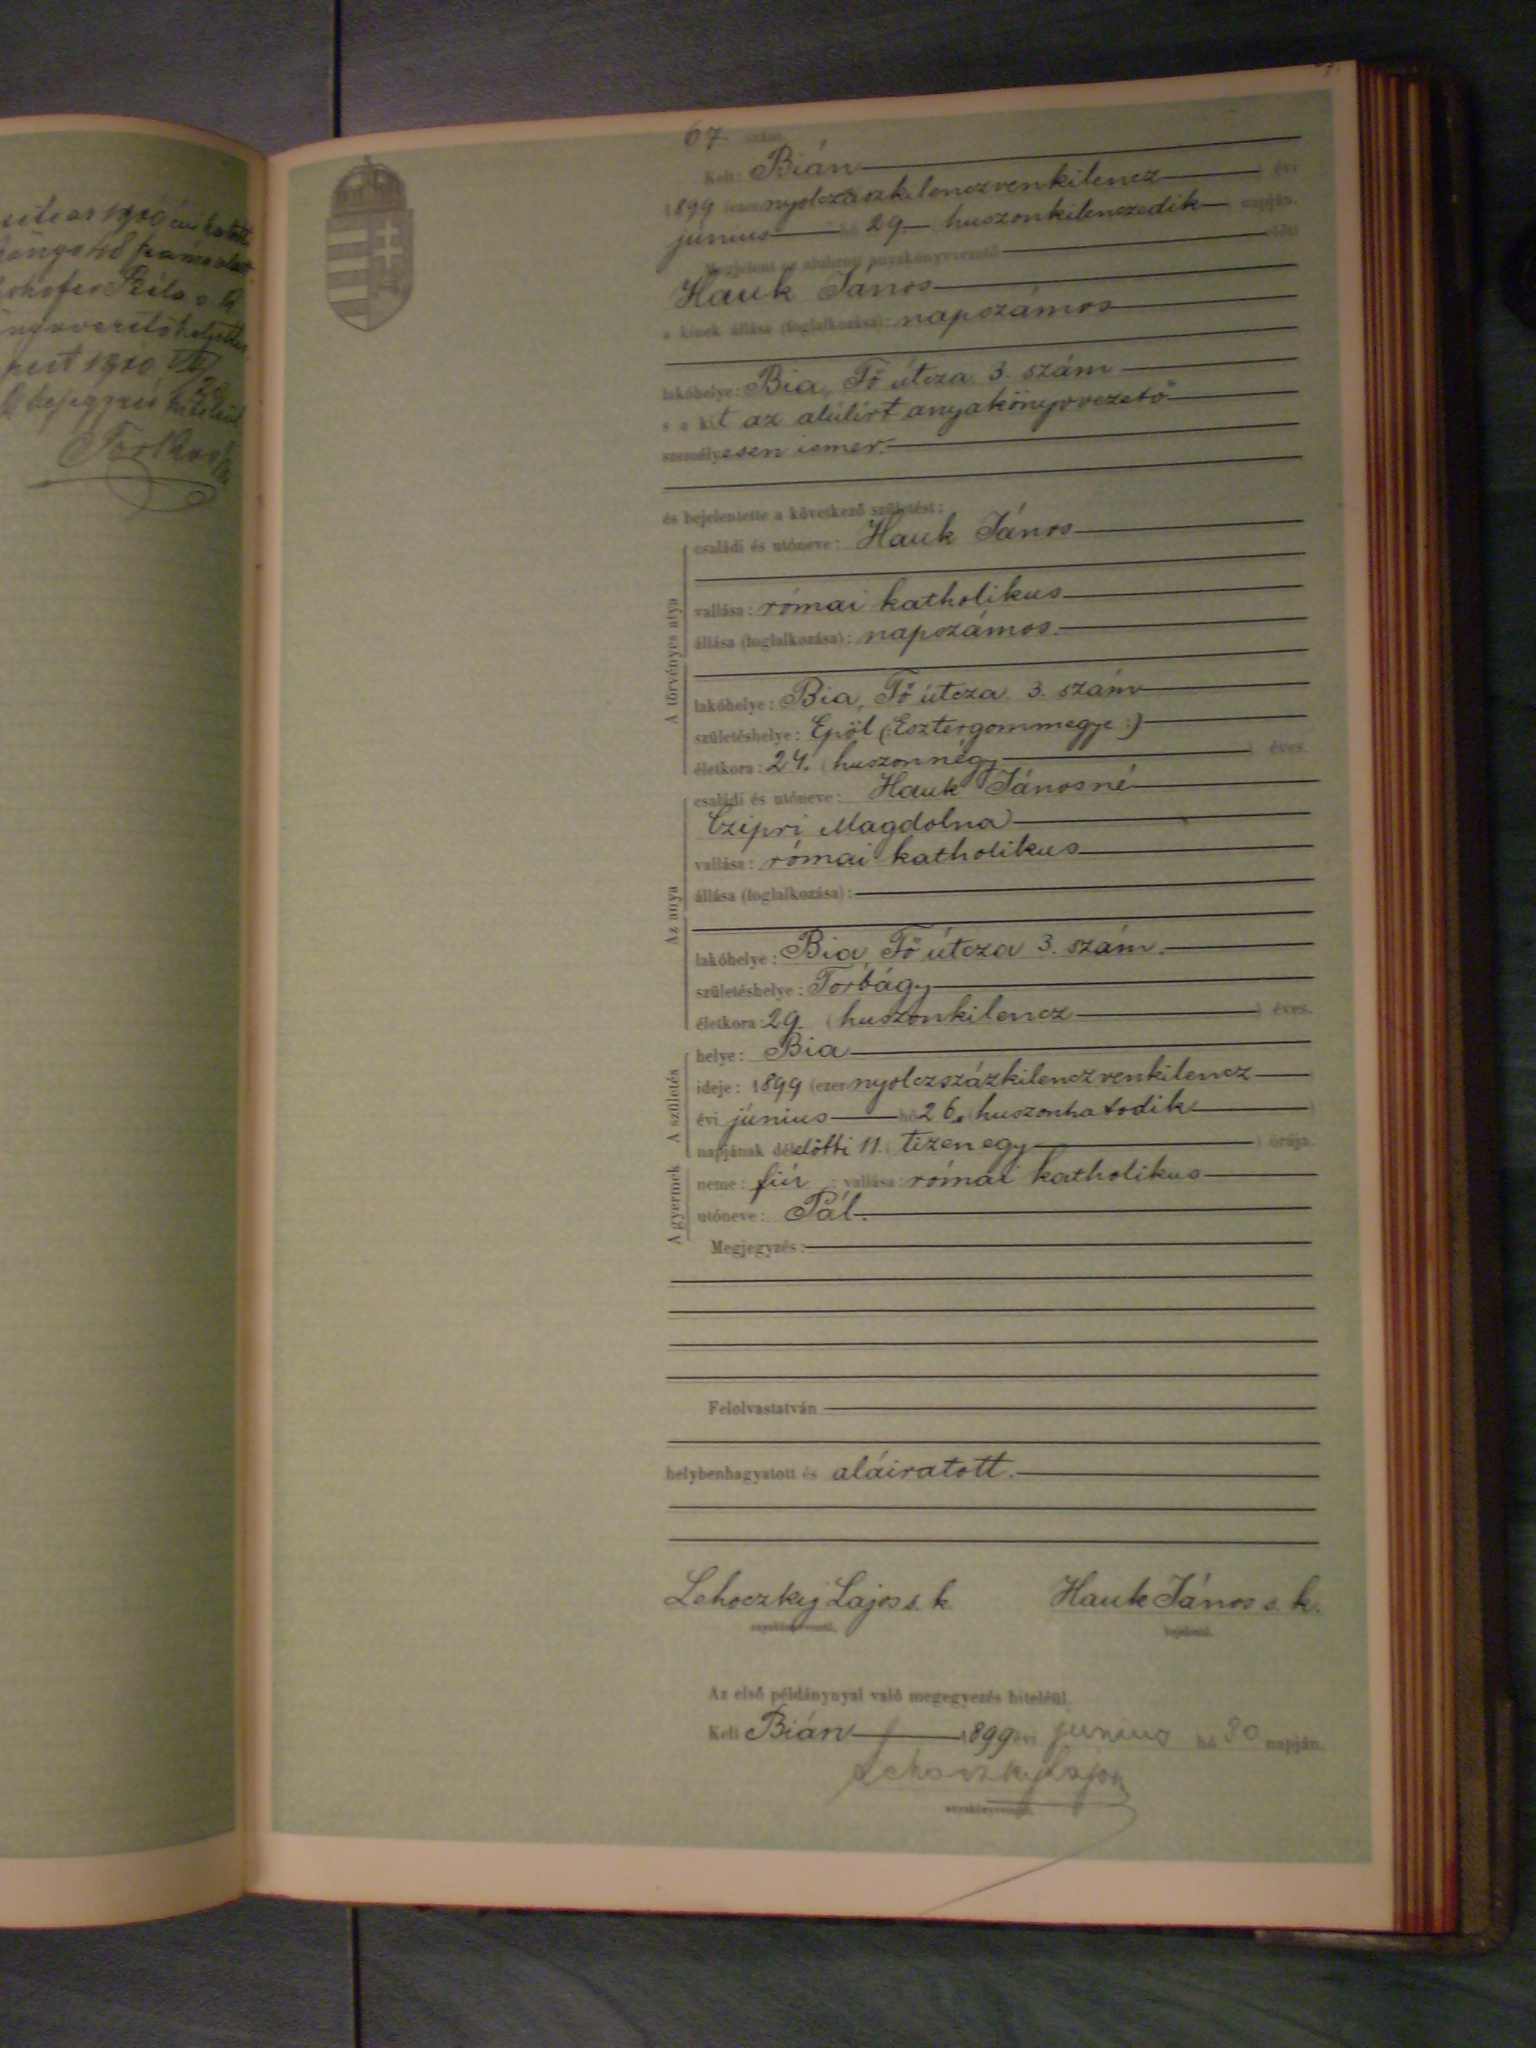 67 szám.
Kelt: Bián
1899 (ezernyolczászkilenczvenkilencz) évi
június hó 29. (huszonkilenczedik) napján.
Megjelent az alulirott anyakönyvvezető előtt
Hauk János
a kinek állása (foglalkozása): napszámos
lakóhelye: Bia, Fő útcza 3. szám
s a kit az alúlírt anyakönyvvezető
személyesen ismer.
és bejelentette a következő születést:
A törvényes atya
családi és utóneve: Hauk János
vallása: római katholikus
állása (foglalkozása): napszámos.
lakóhelye: Bia, Fő útcza. 3. szám
születéshelye: Epöl (:Esztergommegye:)
életkora: 24. (huszonnégy) éves.
Az anya
családi és utóneve: Hauk Jánosné
Czipri Magdolna
vallása: római katholikus
állása (foglalkozása):
lakóhelye: Bia, Fő útcza 3. szám.
születéshelye: Torbágy
életkora: 29. (huszonkilencz) éves.
A születés
helye: Bia
ideje: 1899 (ezernyolczszázkilenczvenkilencz
évi június hó 26. (huszonhatodik)
napjának délelőtti 11. (tizenegy) órája.
A gyermek
neme: fiú ; vallása: római katholikus
utóneve: Pál.
Megjegyzés:
Felolvastatván
helybenhagyatott és aláiratott.
Lehoczky Lajos s. k. Hauk János s. k.
anyakönyvvezető. bejelentő.
Az első példánynyal való megegyezés hiteléül.
Kelt Bián 1899 évi június hó 30 napján.
Lehoczky Lajos
anyakönyvvezető.